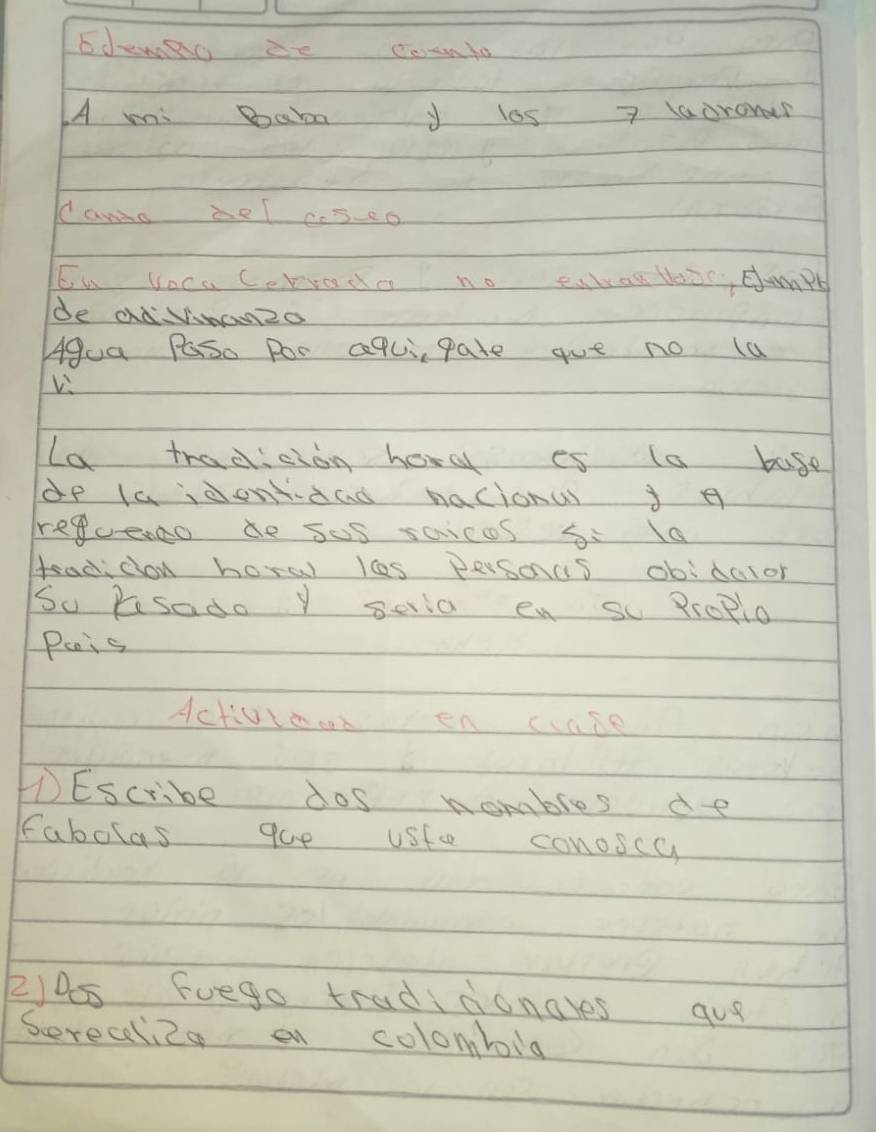 Edemplo de cuento
A mi Baba y los 7 ladrones
Canto del
En voca Cerrada no entras Mosc, Ejmpl
de adivinanza
Agua Paso Por aqui, gate que no la
vi
La tradición horal es la base
de la identidad nacional y
de sus raices si la
tradicion horal las Personas obidalor
Su Pasado y seria en su ProPio
Pais
Actividad en clase
1) Escribe dos nombres de
Fabolas que uste conosca
2) Dos Fuego tradicionales que
Serealiza en colombia